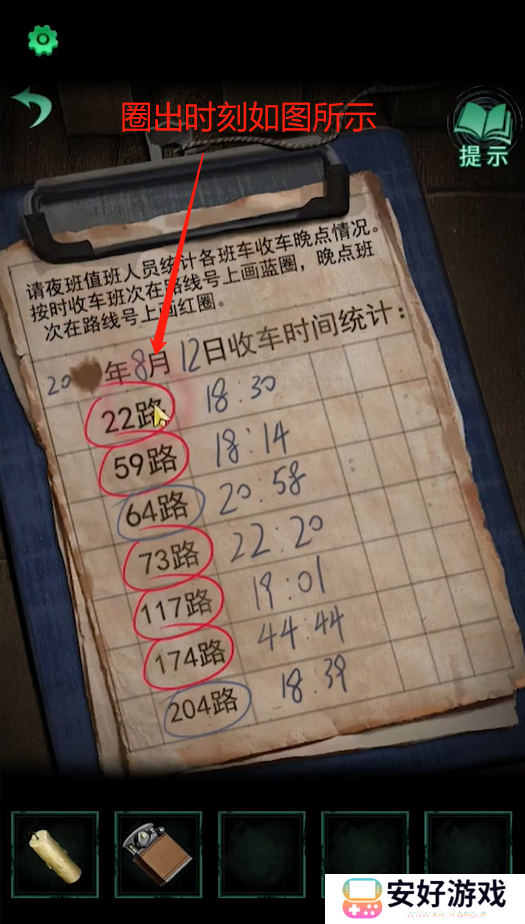 圈出时刻如图所示
提示
请夜班值班人员统计各班车收车晚点情况。
按时收车班次在路线号上画蓝圈，晚点班
次在路线号上画红圈。
20 年8月12日收车时间统计：
22路 18:30
59路 18:14
64路 20:58
73路 22:20
117路 19:01
174路 44:44
204路 18:39
安好游戏
WWW.AHCH.GROUP